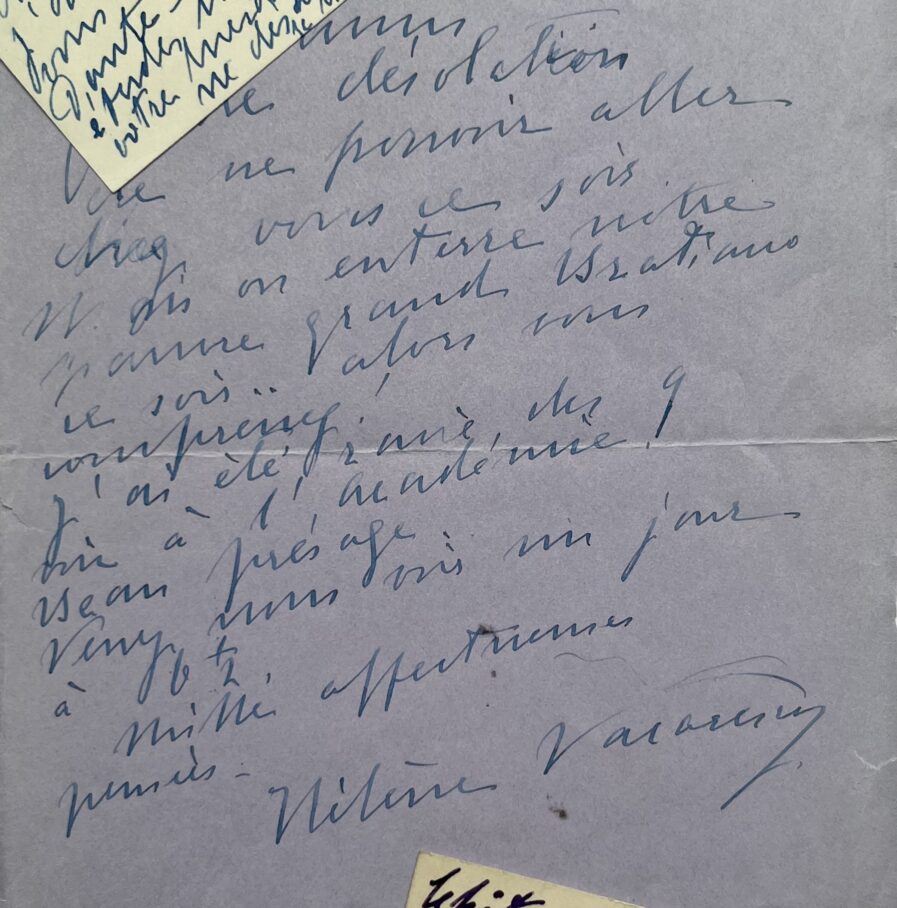 votre
désolation
de ne pouvoir aller
chez vous ce soir
Mais on enterre notre
pauvre grand Bratiano
ce soir.. alors vous
comprenez!
J'ai été ravie, des 9
voix à l'académie!
Beau présage
Venez nous voir un jour
à 6 ½
Mille affectueuses
pensées -
Hélène Vacaresco